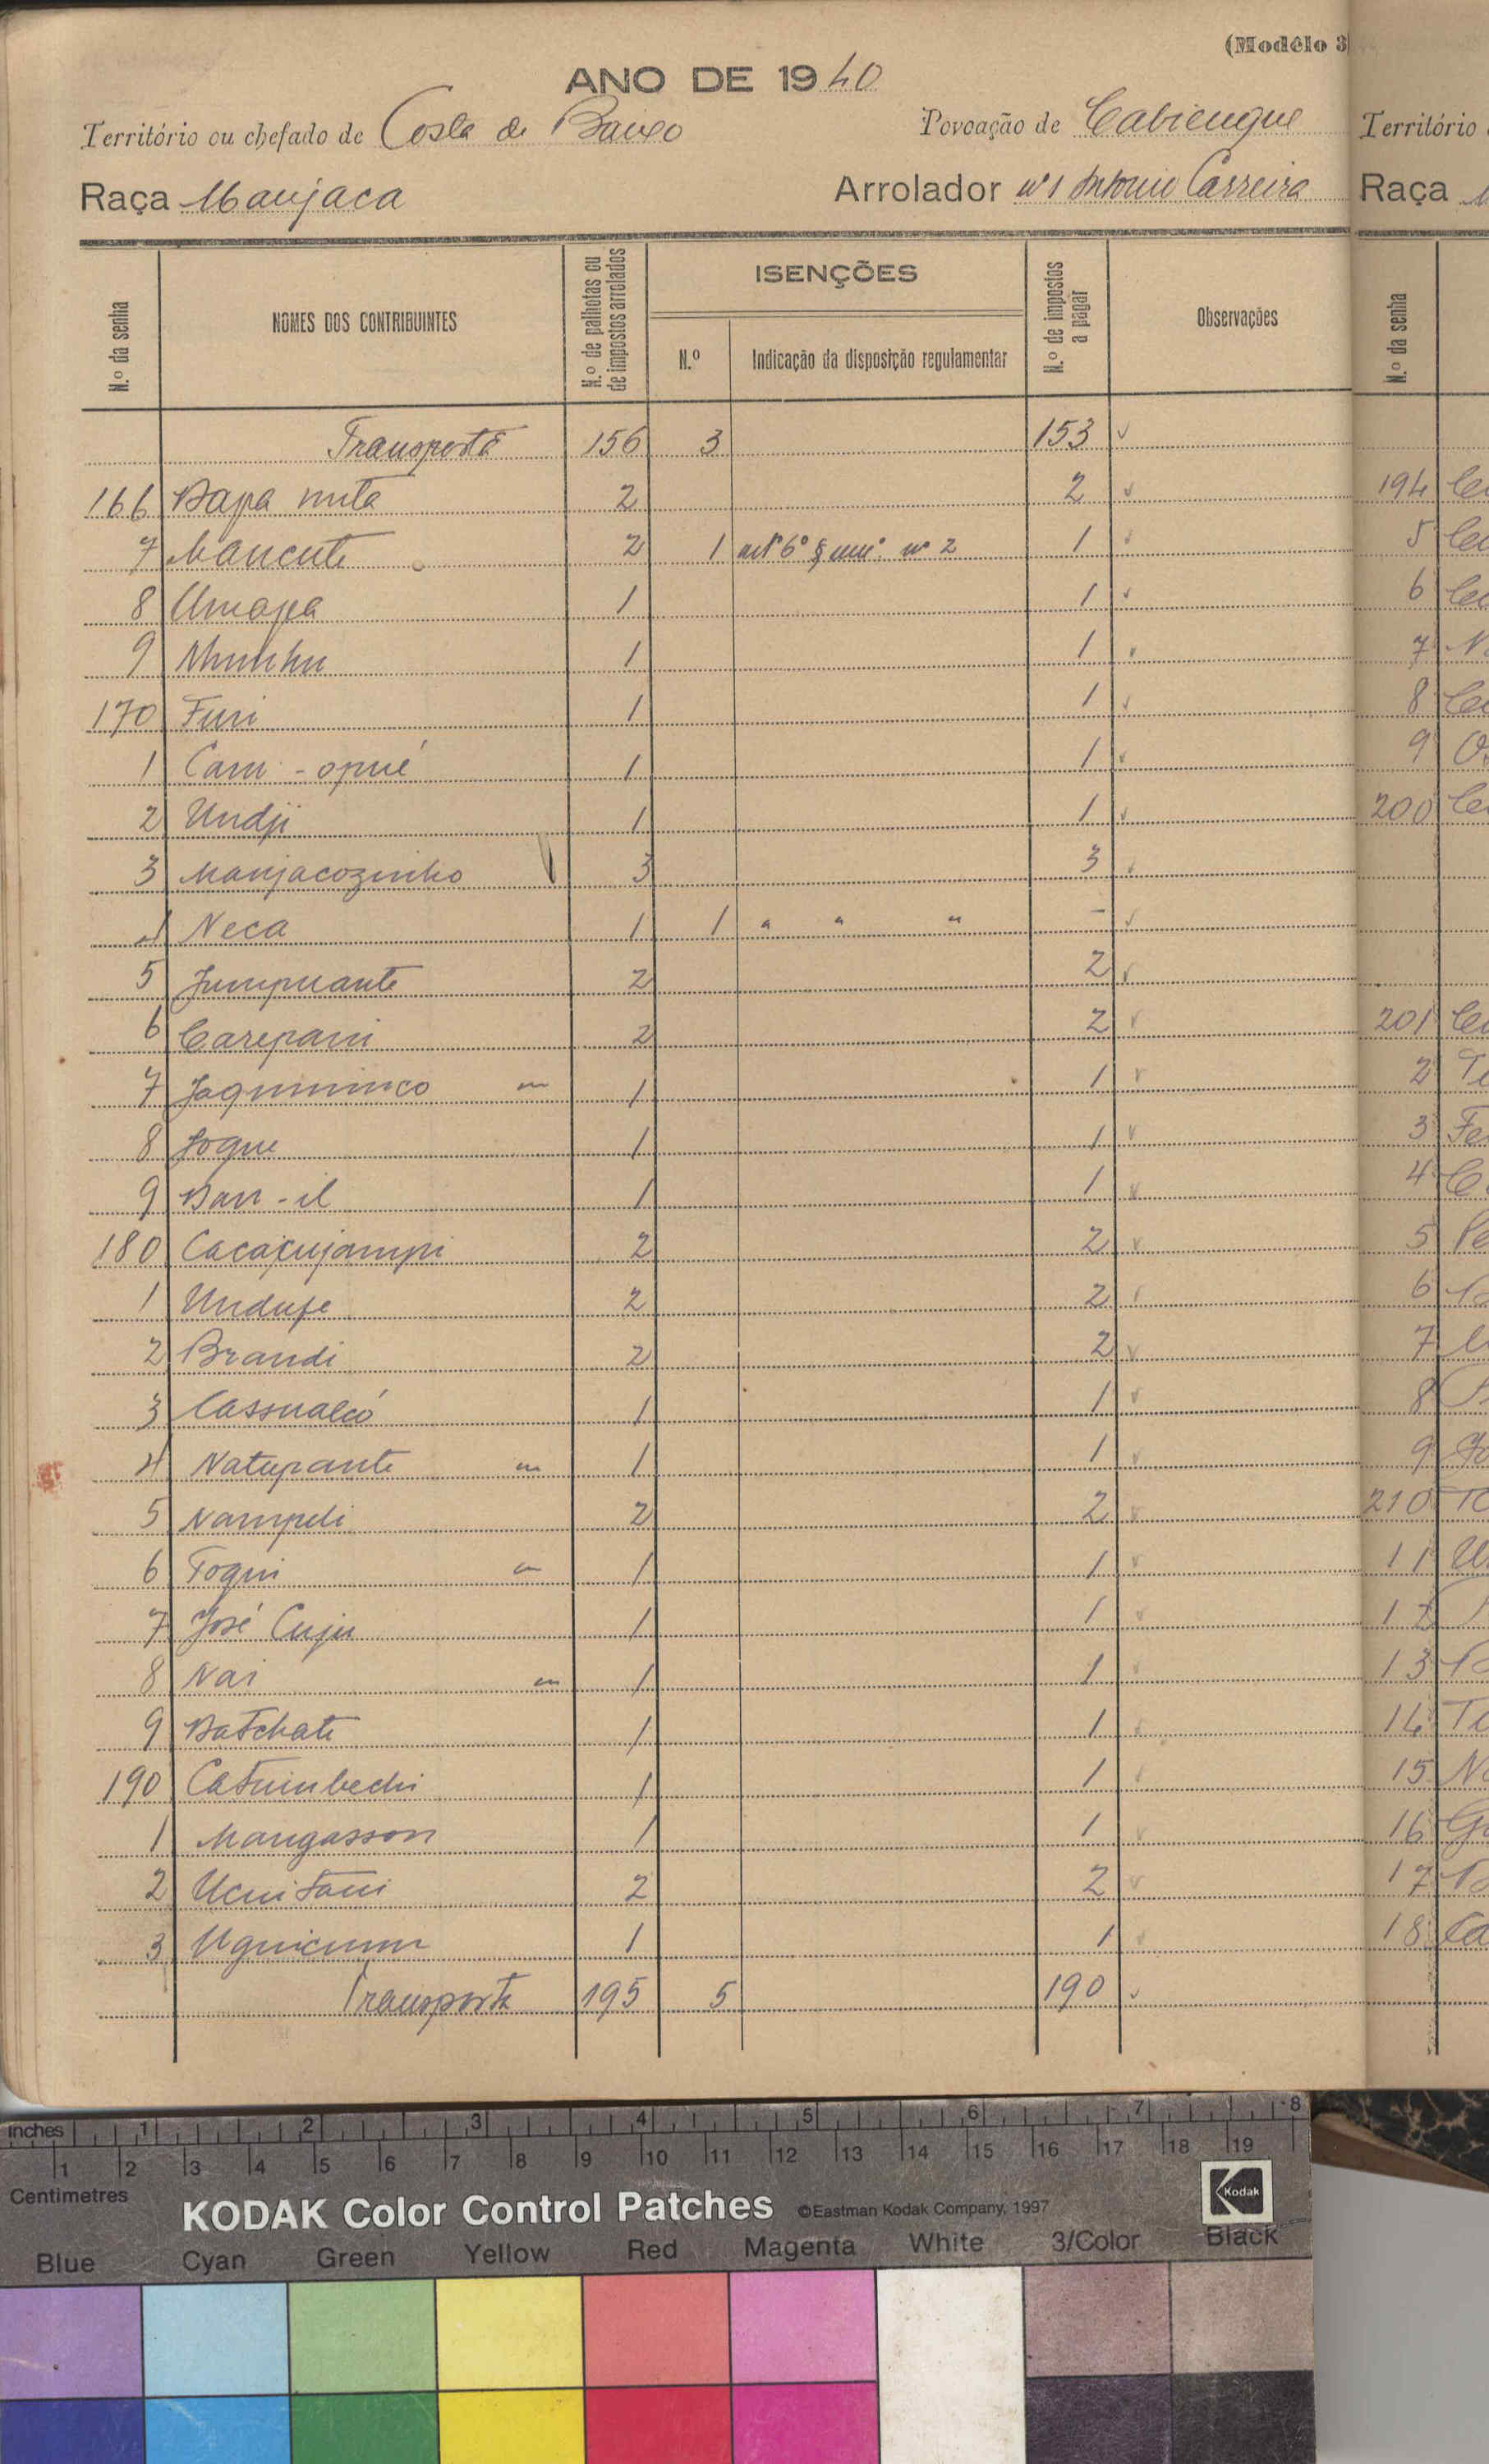 (Modêlo 3
ANO DE 1940
Território ou chefado de Costa de Baixo Povoação de Cabiengue
Raça Manjaca Arrolador nº 1 Antonio Carreira
N.º da senha NOMES DOS CONTRIBUINTES N.º de palhotas ou de impostos arrolados ISENÇÕES N.º de impostos a pagar Observações
N.º Indicação da disposição regulamentar
Transporte 156 3 153 ✓
166 Dapa nuta 2 2 ✓
7 Mancute 2 1 artº 6º § uniº nº 2 1 ✓
8 Umapa 1 1 ✓
9 Nhunhu 1 1 ✓
170 Furi 1 1 ✓
1 Cam-opué 1 1 ✓
2 Undji 1 1 ✓
3 Manjacozinho 3 3 ✓
4 Neca 1 1 " " " - ✓
5 Jumpuante 2 2 ✓
6 Carepani 2 2 ✓
7 Jaquminco 1 1 ✓
8 Joque 1 1 ✓
9 Dan-il 1 1 ✓
180 Cacacujampi 2 2 ✓
1 Undufe 2 2 ✓
2 Brandi 2 2 ✓
3 Cassualcó 1 1 ✓
4 Natupante 1 1 ✓
5 Nampeli 2 2 ✓
6 Toqui 1 1 ✓
7 José Cuju 1 1 ✓
8 Nai 1 1 ✓
9 Datchate 1 1 ✓
190 Catumbechi 1 1 ✓
1 Mangasson 1 1 ✓
2 Ucuitani 2 2 ✓
3 Uguicumn 1 1 ✓
Transporte 195 5 190 ✓
Território
Raça
N.º da senha
194
5
6
7
8
9
200
201
2
3
4
5
6
7
8
9
210
11
12
13
14
15
16
17
18
inches 1 2 3 4 5 6 7 8
1 2 3 4 5 6 7 8 9 10 11 12 13 14 15 16 17 18 19
Centimetres
KODAK Color Control Patches ©Eastman Kodak Company, 1997 Kodak
Blue Cyan Green Yellow Red Magenta White 3/Color Black